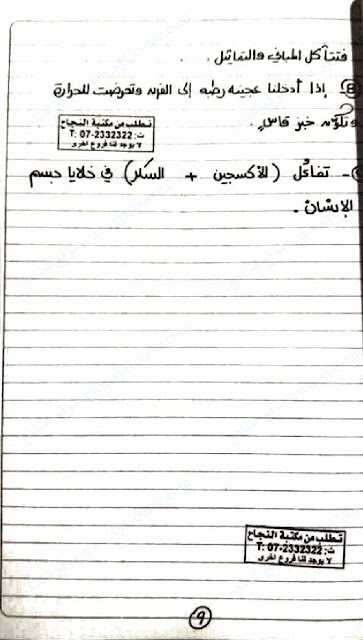 فتتآكل المباني والتماثيل .
⑧ إذا أدخلنا عجينة رطبة إلى الفرن وتعرضت للحرارة
وتكوّن خبز قاسٍ .
تطلب من مكتبة النجاح
ت: 07-2332322 :T
لا يوجد لنا فروع اخرى
- تفاعُل (للأكسجين + السكر) في خلايا جسم
الإنسان .
تطلب من مكتبة النجاح
ت: 07-2332322 :T
لا يوجد لنا فروع اخرى
٩